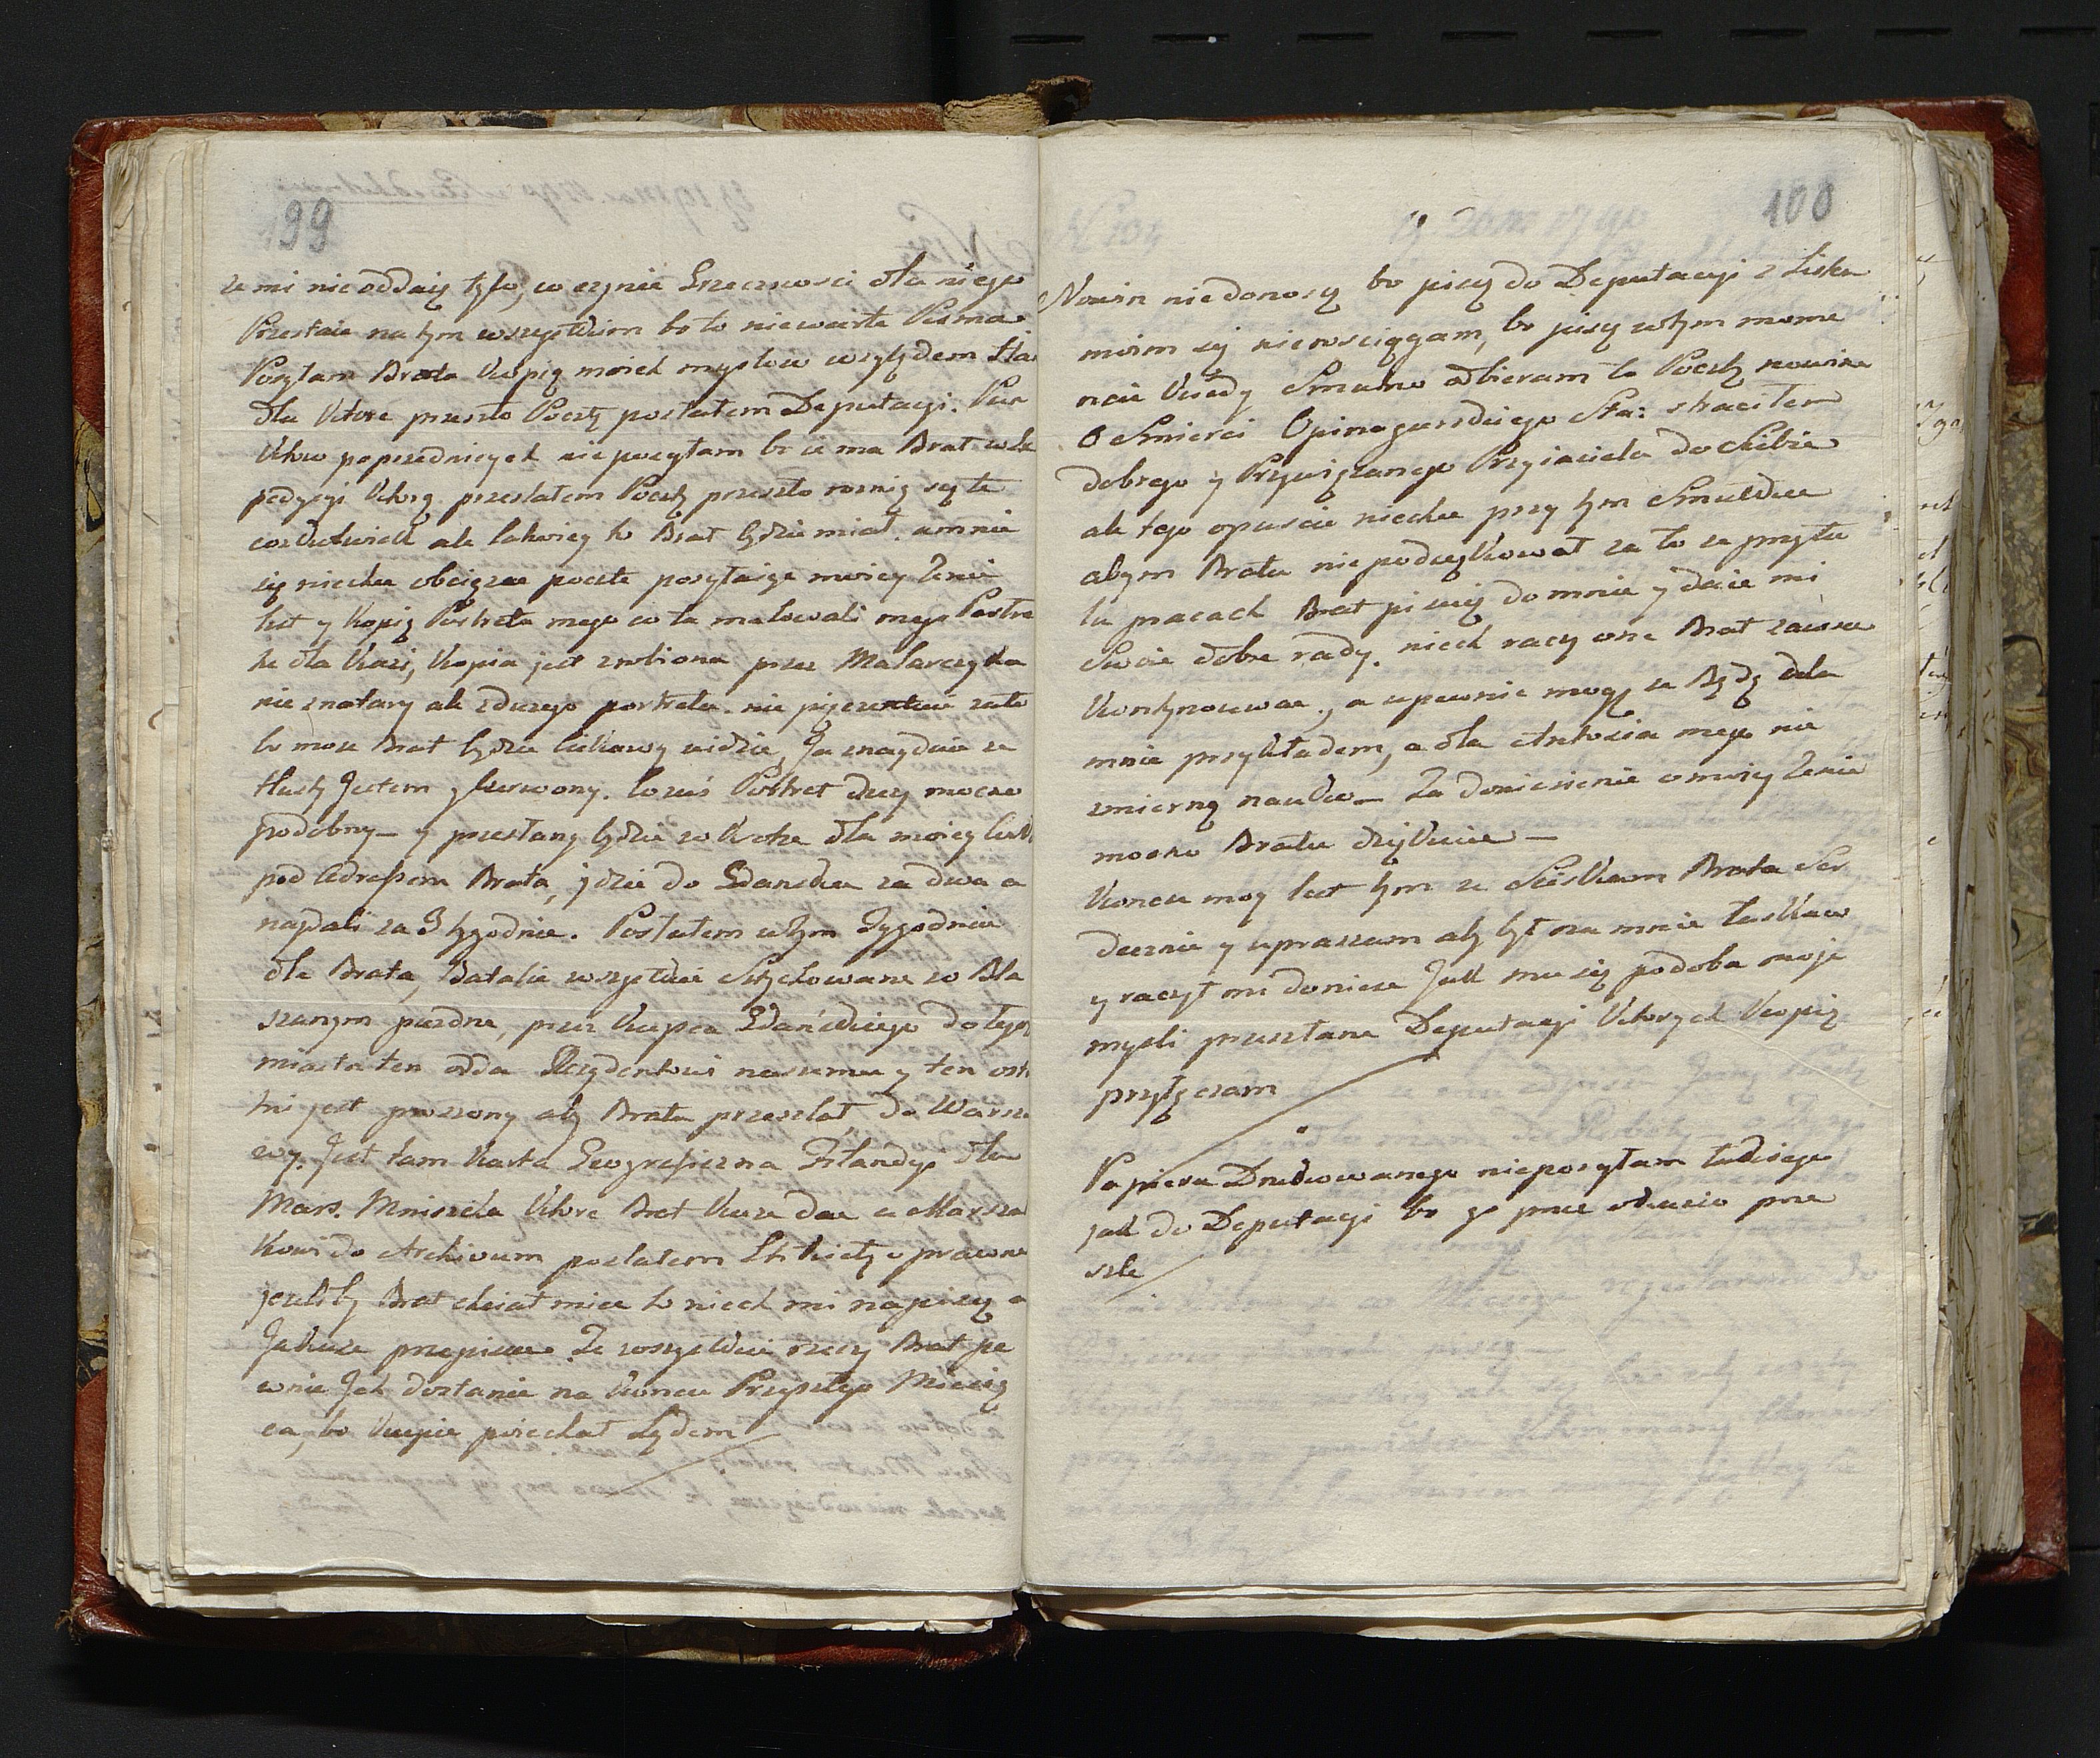 99
ze mi nie oddaię tyło, co czynie Grzecznosci dla niego
Przestaie na tym wszystkim bo to niewarte Pisma
Posyłam Brata Kopię moich mysłow względem
dla Ktore przeszło Pocztę posłałem Deputacyi.
poprzedniczych nie posyłam bo ie ma Brat
pedycyi Ktorą przesłałem Pocztę przeszło rożnią się te
cozkolwiek ale łatwiey to Brat będzie miał. amnie
się niechce obciązac poczte posyłaiąc moiey Zenie
list y Kopią Portretu mego co tu malowali mego Portre
tu dla Kazi, Kopia jest zrobiona przez Malarczyka
nie znotary ale z duzego portretu. nie piszę
bo moze Brat będzie ciekawy widzic, Ja znayduie ze
tłusty Jestem y czerwony. cozuś Portret duzy mocno
podobny — y przesłany będzie w krotce dla moiey
pod Adressem Brata, jdzie do Gdanska za dwa a
naydali za 3 tygodnie. Posłałem w tym Tygodniu
dla Brata, Batalie wszystkie Sztychowane w Bla
szanym puzdrze, przez Kupca Gdańskiego do tego
miasta ten odda Rezydentowi naszemu y ten
tni jest proszony aby Brata przesłał, do Warsza
wy. Jest tam Karta Geograficzna Fitlandyi dla
Mars. Mniszcha Ktore Brat Kaze dac a Marszał
kowi do Archivum posłałem
jezeliby Brat chciał miec to niech mi napiszę a
Ja kaze przepisac. Te wszystkie rzeczy Brat pe
wnie Jak dostanie na koncu Przyszłego Miesią
ca, bo Kupie poiechał Lądem
100
Nowin niedonoszę bo piszę do Deputacyi z Liste
moim się nierosciągam, bo piszę w tym mome
ncie Kiedy Smutno odbieram tę Pocztę nowinę
o Smierci Opinagurskiego Sta: straciłem
dobrego y Przywiązanego Przyiaciela do Siebie
ale tego opuscic niechce przy tym Smutku
abym Bratu niepodziękował za to ze przy tu
lu pracach Brat piszę do mnie y daie mi
Swoie dobre rady. niech raczy one Brat zawsze
Kontynuowac, a upewnic mogę ze Będą dla
mnie przykładem, a dla Antosia mego nie
zmierną nauką — Za doniesienie o moiey Zenie
mocno Bratu dziękuie —
Koncze moy list tym ze Sciskam Brata Ser
decznie y upraszam aby był na mnie łaskaw
y raczył mi doniesc Jak mu się podoba moje
mysli przesłane Deputacyi Ktorych Kopią
przyłączam
Papieru Drukowanego nieposyłam takiego
jak do Deputacyi bo go przez okazio prze
szle